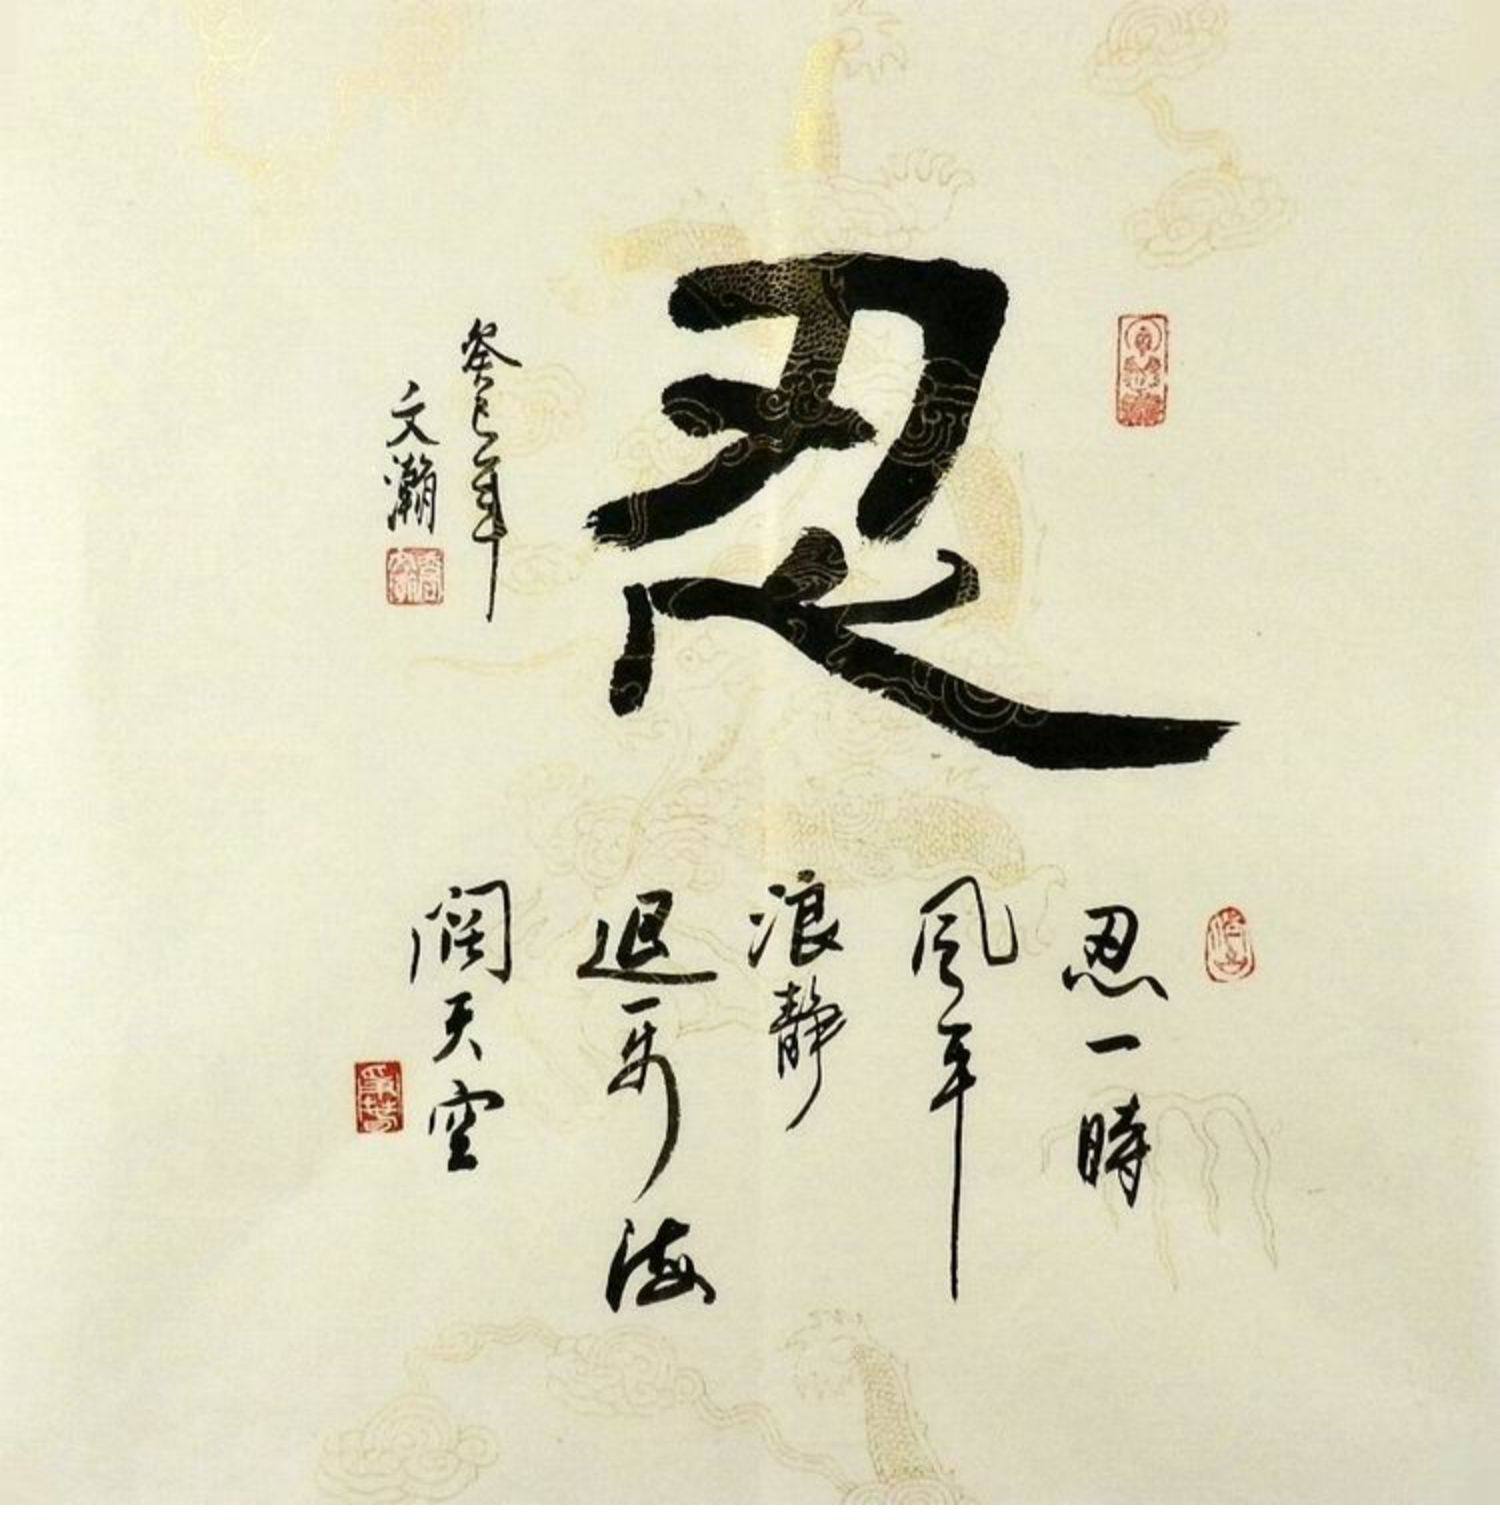 忍
癸巳年
文瀚
忍一時
風平
浪靜
退一步海
闊天空